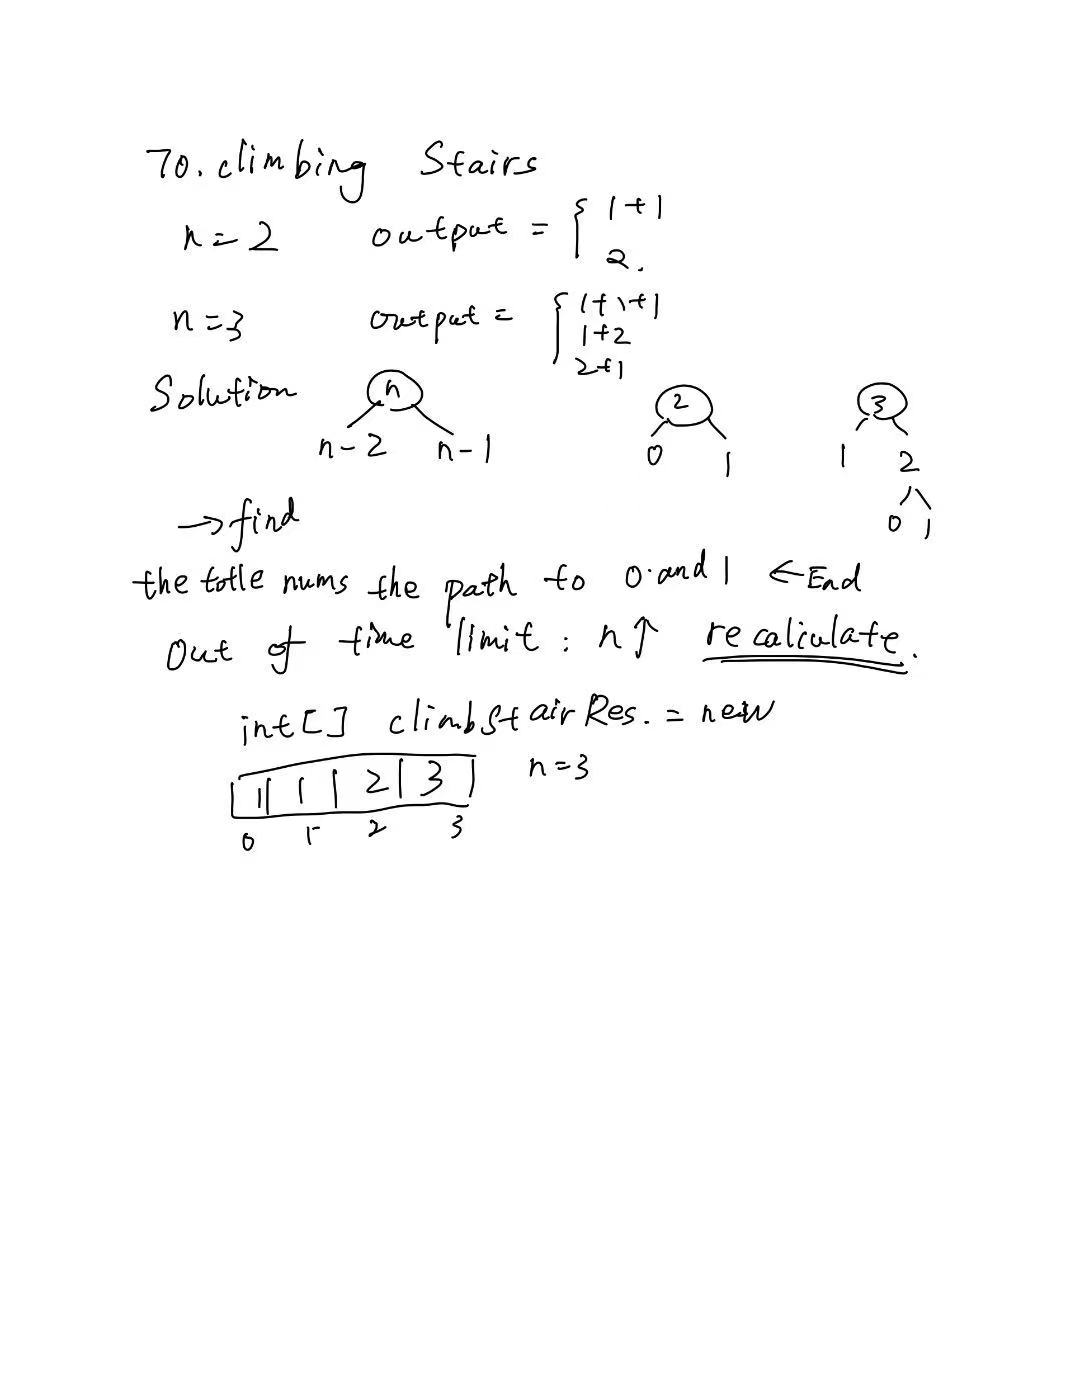 70. climbing Stairs
n = 2 output = { 1+1
2.
n = 3 output = { 1+1+1
1+2
2+1
Solution n 2 3
n-2 n-1 0 1 1 2
0 1
→ find
the totle nums the path to 0. and 1 ← End
Out of time limit : n↑ recaliulate.
int[] climbStairRes. = new
1 | 1 | 2 | 3 n=3
0 1 2 3